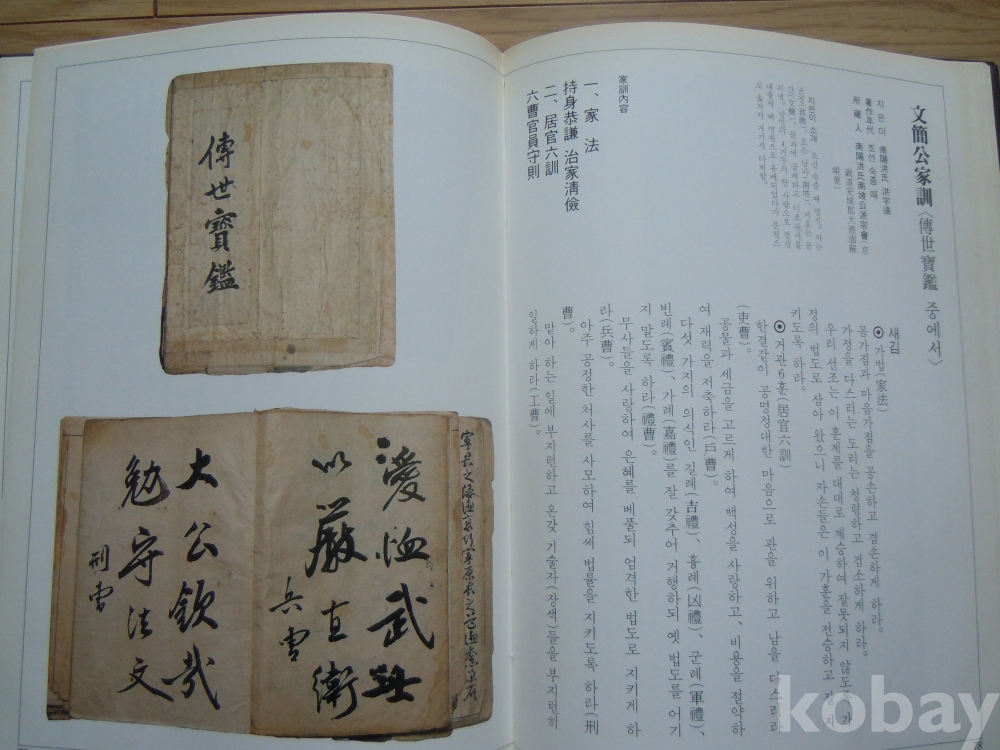 文簡公家訓〈傳世寶鑑 중에서〉
지은이 南陽洪氏 洪宇遠
著作年代 조선 숙종 때
所藏人 南陽洪氏南坡公派宗會(京
畿道安城郡大德面蘇
지은이 소개 조선 숙종 때 명신, 자는
家訓內容
一、家法
持身恭謙 治家淸儉
二、居官六訓
六曹官員守則
새김
⊙ 가법(家法)
몸가짐과 마음가짐을 공손하고 겸손하게 하라.
가정을 다스리는 도리는 청렴하고 검소하게 하라.
우리 선조는 이 훈계를 대대로 계승하여 잘못되지 않도록 가
정의 법도로 삼아 왔으니 자손들은 이 가훈을 전승하고 잘 지
키도록 하라.
⊙ 거관6훈(居官六訓)
한결같이 공명정대한 마음으로 관을 위하고 남을 다스리라
(吏曹).
공물과 세금을 고르게 하여 백성을 사랑하고, 비용을 절약하
여 재력을 저축하라(戶曹).
다섯 가지의 의식인 길례(吉禮)、흉례(凶禮)、군례(軍禮)、
빈례(賓禮)、가례(嘉禮)를 잘 갖추어 거행하되 옛 법도를 어기
지 말도록 하라(禮曹).
무사들을 사랑하여 은혜를 베풀되 엄격한 법도로 지키게 하
라(兵曹).
아주 공정한 처사를 사모하여 힘써 법률을 지키도록 하라(刑
曹).
맡아 하는 일에 부지런하고 온갖 기술자(장색)들을 부지런히
일하게 하라(工曹).
傳世寶鑑
愛恤武士
以嚴直衛
兵曹
大公欽哉
勉守法文
刑曹
kobay